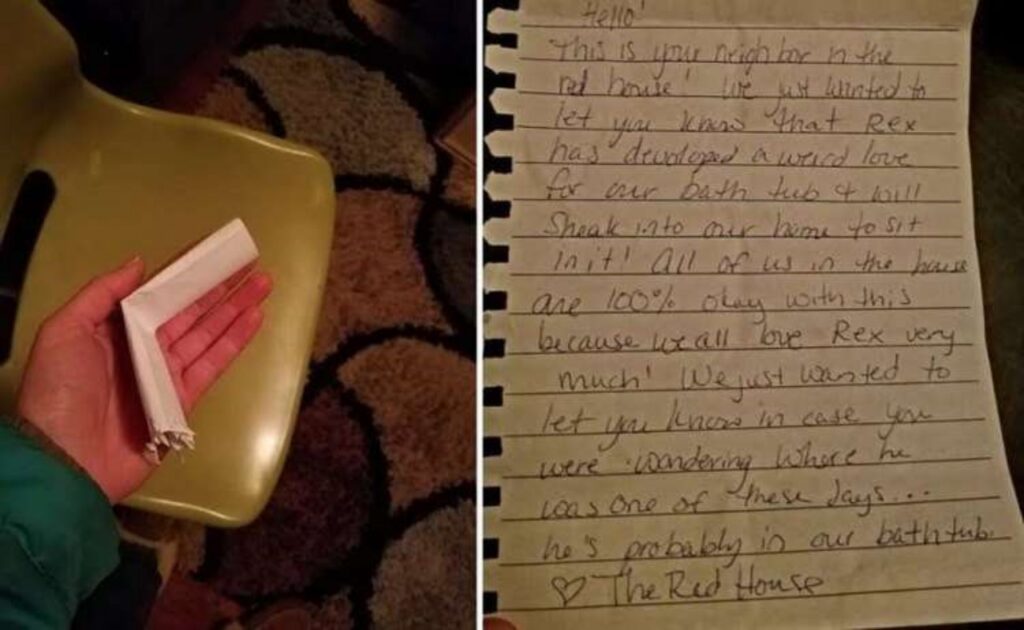 Hello!
This is your neighbor in the
red house! We just wanted to
let you know that Rex
has developed a weird love
for our bath tub & will
Sneak into our home to sit
in it! All of us in the house
are 100% okay with this
because we all love Rex very
much! We just wanted to
let you know in case you
were wondering where he
was one of these days...
he's probably in our bathtub.
♡ The Red House